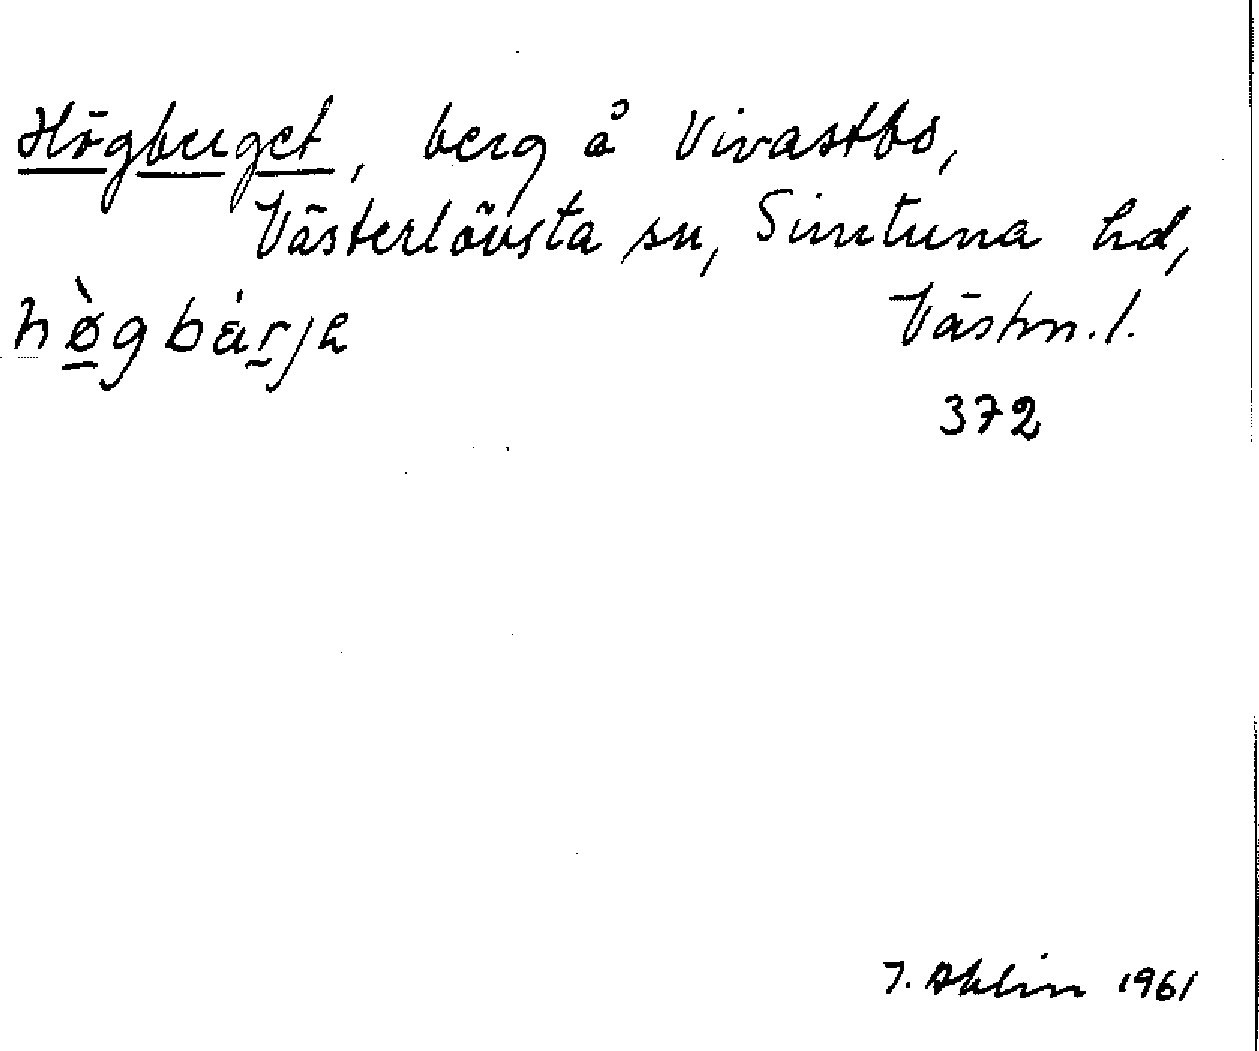 Högberget, berg å Vivastbo,
Västerlövsta sn, Simtuna hd,
hø̀gbárje Västm. l.
372
J. Ahlin 1961